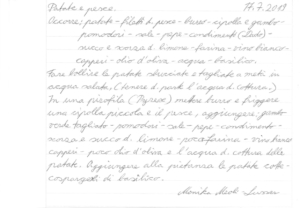 Patate e pesce. 17.7.2019
Occorre: patate - filetti di pesce - burro - cipolla e
pomodori - sale - pepe - condimento (Dado) -
succo e scorza di limone - farina - vino bianco -
capperi - olio d'oliva - acqua - basilico.
Fare bollire le patate sbucciate e tagliate a metà in
acqua salata, (tenere da parte l'acqua di cottura.)
In una pirofila (Pyrex) mettere burro e friggere
una cipolla piccola e il pesce, aggiungere
tagliate - pomodori - sale - pepe - condimento -
scorza e succo di limone - poca farina - vino bianco
capperi - poco olio d'oliva e l'acqua di cottura delle
patate. Aggiungere alla pietanza le patate cotte
cosparse di basilico.
Monika